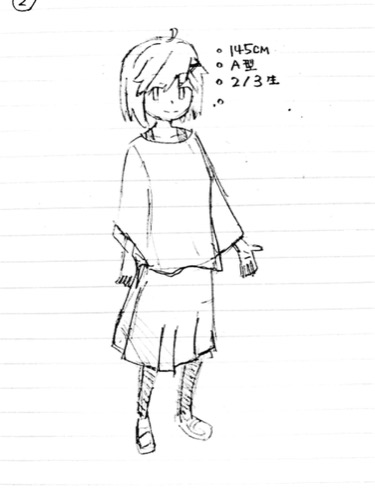 ②
145cm
A型
2/3生